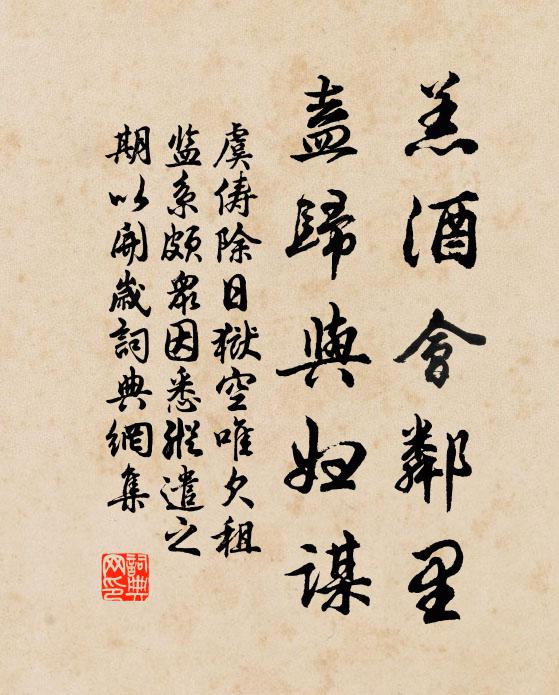 羔酒會鄰里
盍歸與妇謀
虞俦除日獄空唯欠租
监系頗衆因悉縱遣之
期以開歲詞典網集
詞典网印